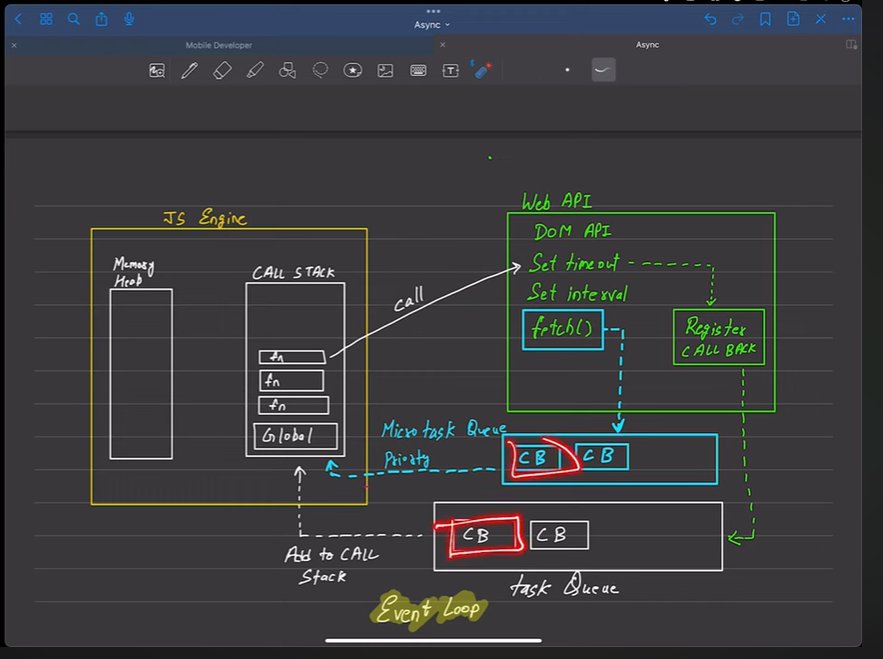 Async
Mobile Developer
Async
JS Engine
Memory
Heab
CALL STACK
fn
fn
fn
Global
call
Web API
DOM API
Set timeout
Set interval
fetch()
Register
CALL BACK
Microtask Queue
Priority
CB
CB
CB
CB
Add to CALL
Stack
task Queue
Event Loop